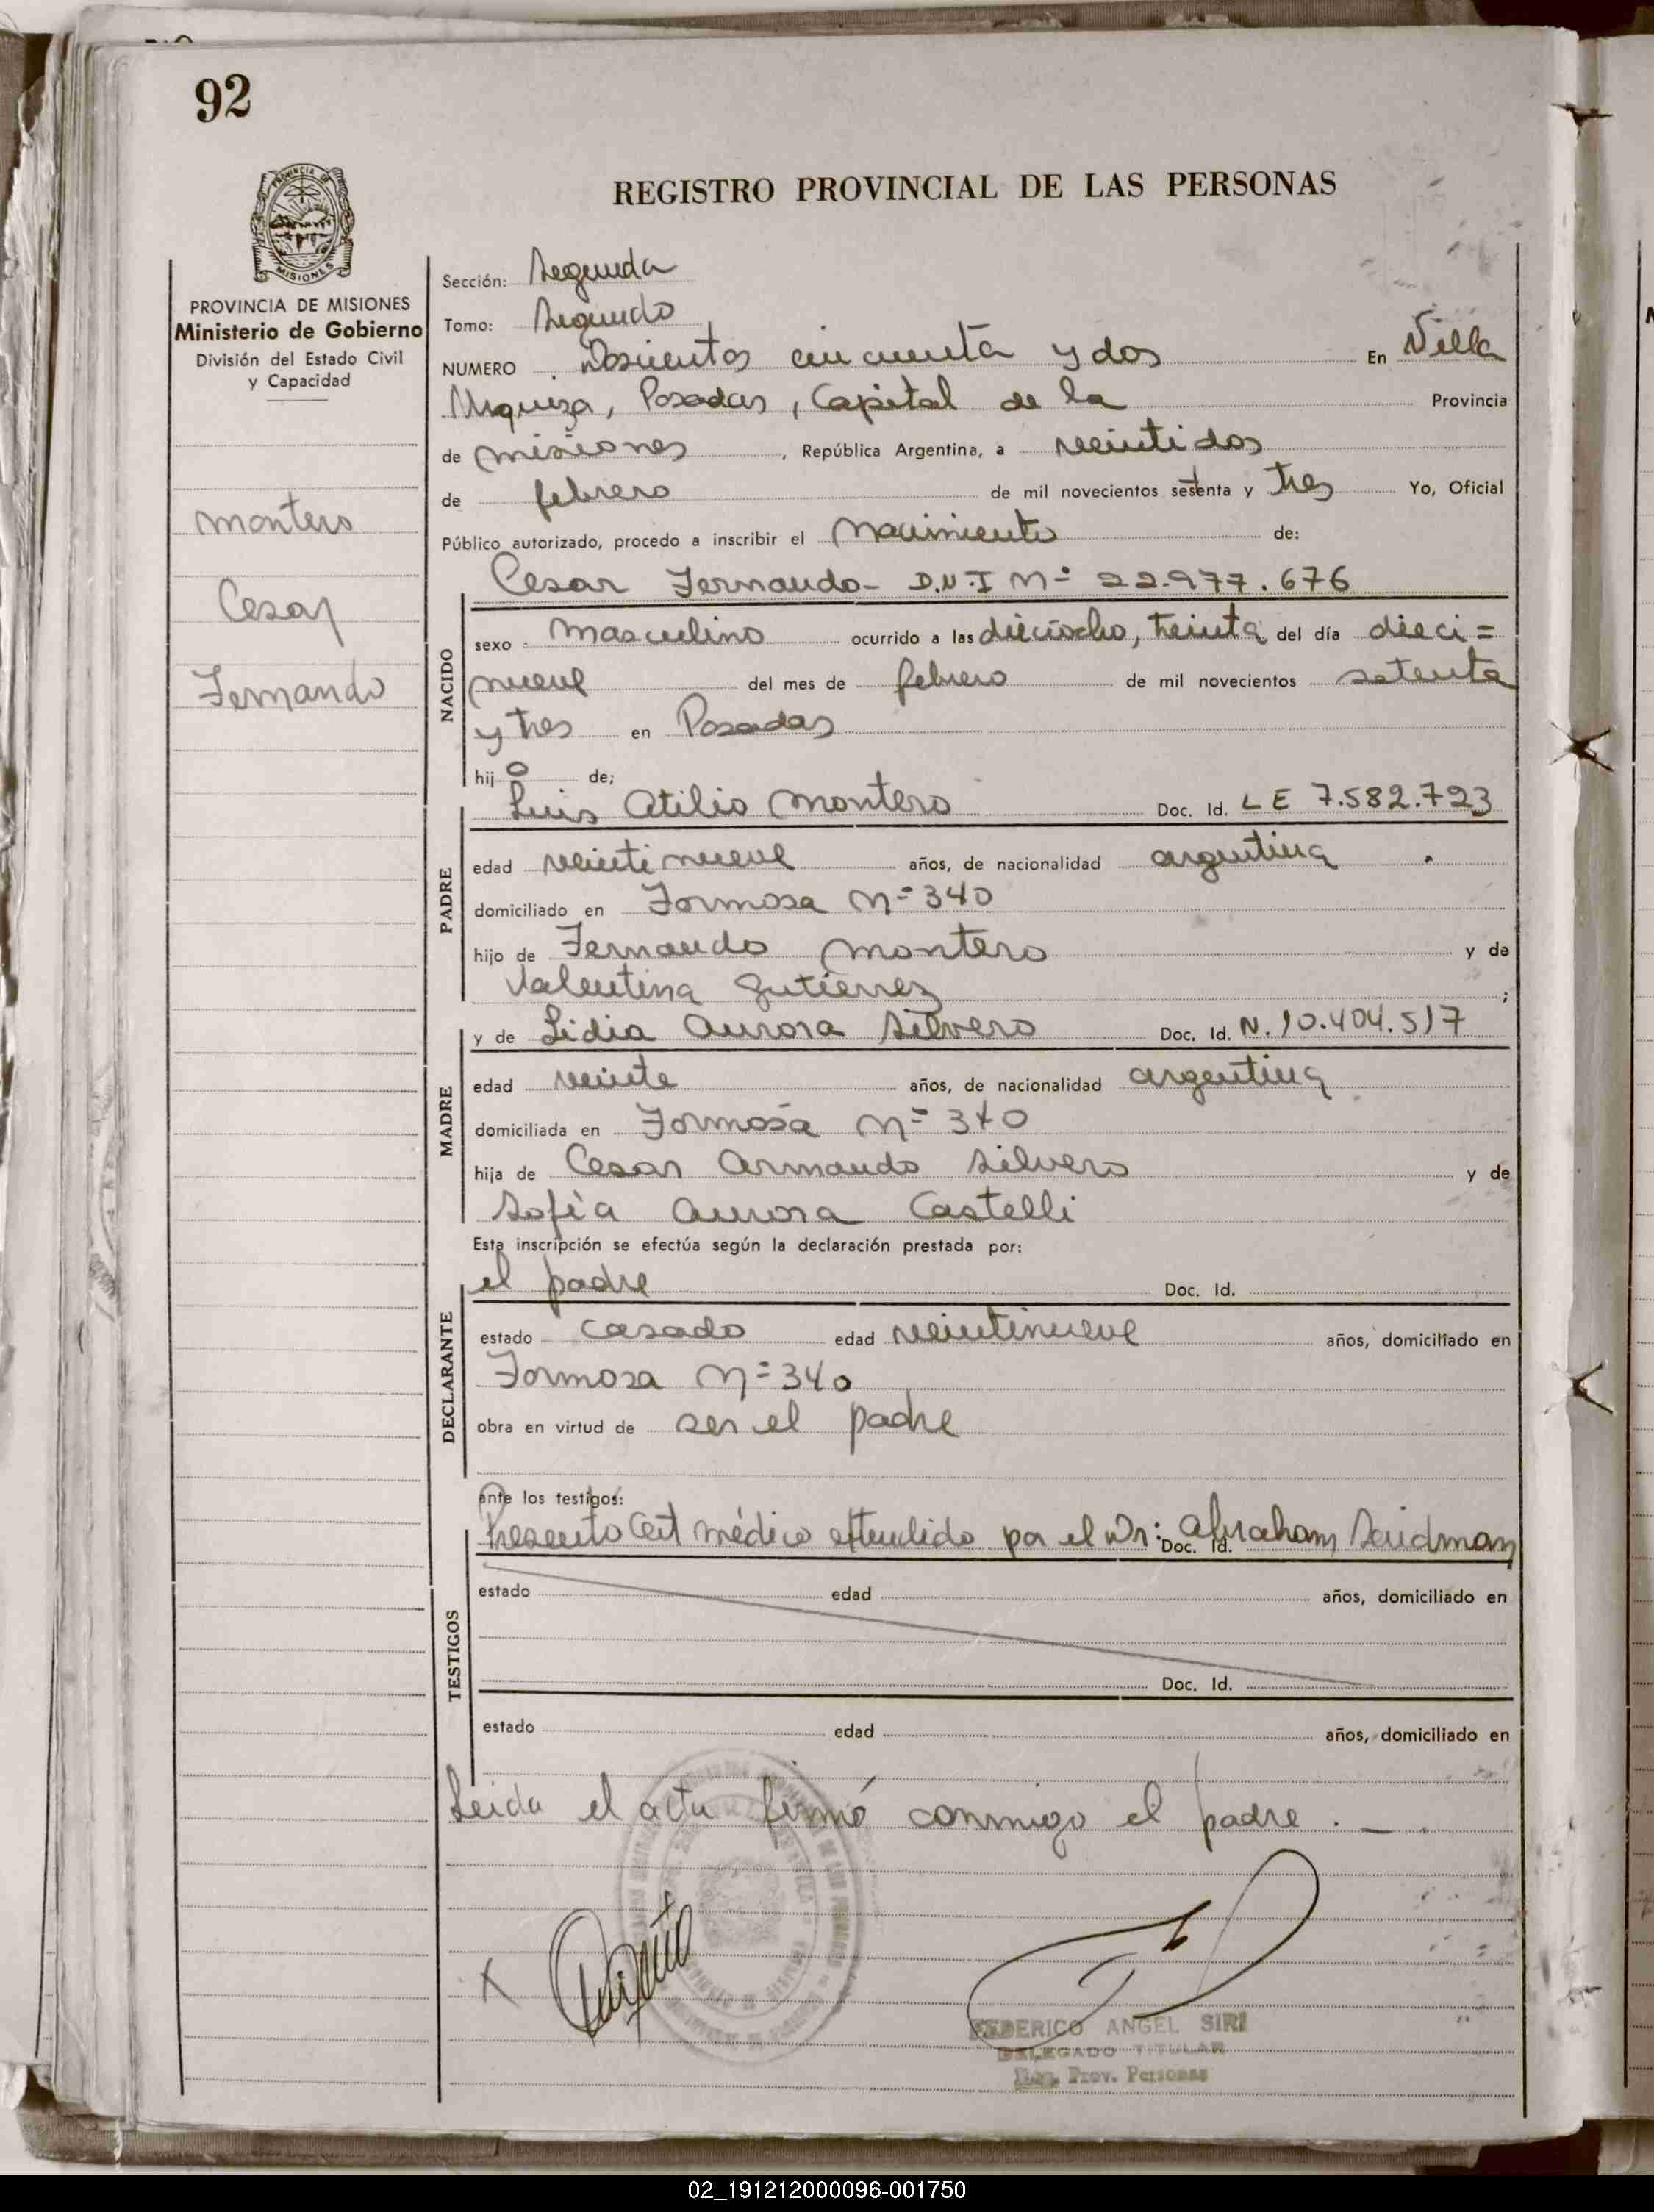 92
PROVINCIA DE
MISIONES
REGISTRO PROVINCIAL DE LAS PERSONAS
PROVINCIA DE MISIONES
Ministerio de Gobierno
División del Estado Civil
y Capacidad
Montero
Cesar
Fernando
Sección: Segunda
Tomo: Segundo
NUMERO Doscientos cincuenta y dos En Villa
Urquiza, Posadas, Capital de la Provincia
de misiones, República Argentina, a veintidos
de febrero de mil novecientos setenta y tres Yo, Oficial
Público autorizado, procedo a inscribir el nacimiento de:
Cesar Fernando - D.N.I Nº 22.977.676
NACIDO
sexo masculino ocurrido a las dieciocho, treinta del día dieci=
nueve del mes de febrero de mil novecientos setenta
y tres en Posadas
hijo de;
Luis Atilio Montero Doc. Id. LE 7.582.723
PADRE
edad veintinueve años, de nacionalidad argentina
domiciliado en Formosa Nº 340
hijo de Fernando Montero y de
Valentina Gutierrez ;
y de Lidia Aurora Silvero Doc. Id. N. 10.404.517
MADRE
edad veinte años, de nacionalidad argentina
domiciliada en Formosa Nº 340
hija de Cesar Armando Silvero y de
Sofía Aurora Castelli
Esta inscripción se efectúa según la declaración prestada por:
el padre Doc. Id.
DECLARANTE
estado casado edad veintinueve años, domiciliado en
Formosa Nº 340
obra en virtud de ser el padre
ante los testigos:
Presento Cert médico extendido por el Dr: Abraham Seidman
Doc. Id.
TESTIGOS
estado edad años, domiciliado en
Doc. Id.
estado edad años, domiciliado en
Leida el acta firmó conmigo el padre . — .
X
FEDERICO ANGEL SIRI
DELEGADO TITULAR
Reg. Prov. Personas
02_191212000096-001750